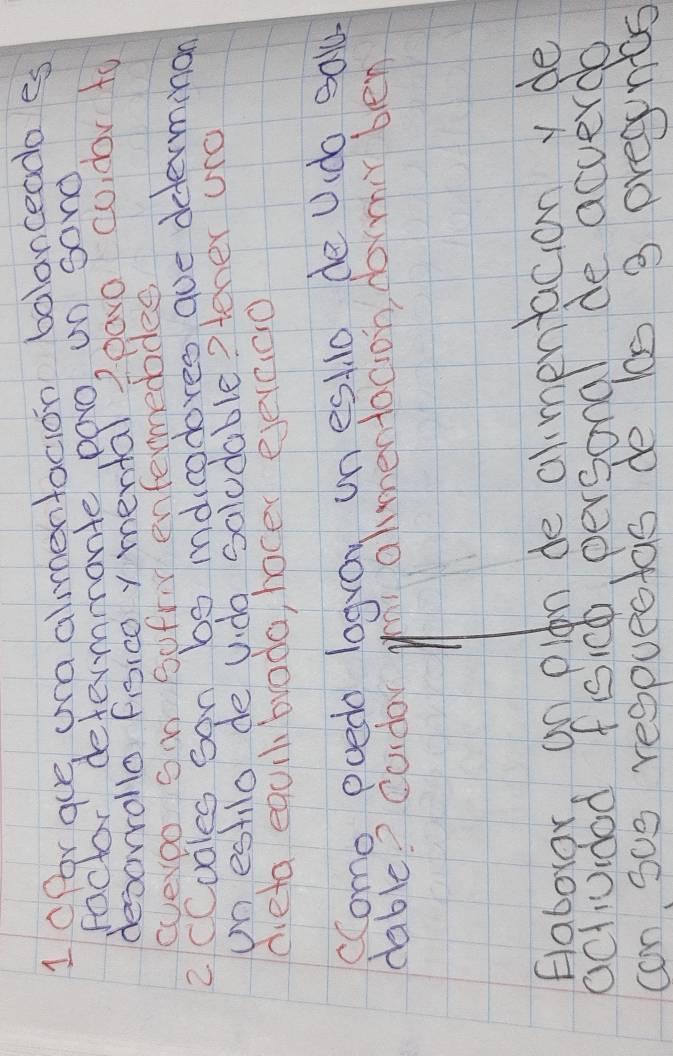 1 ¿Por que una alimentación balanceada es
factor determinante para un sano
desarrollo fisico y mental? para cuidar tu
cuerpo sin sufrir enfermedades
2 ¿Cuales son los indicadores que determinan
un estilo de vida saludable? tener una
dieta equilibrada, hacer ejercicio
¿Como puedo lograr un estilo de vida salu-
dable? cuidar mi alimentación, dormir bien
Elaborar un plan de alimentacion y de
actividad fisica personal de acuerdo
con sus respuestas de las 3 preguntas